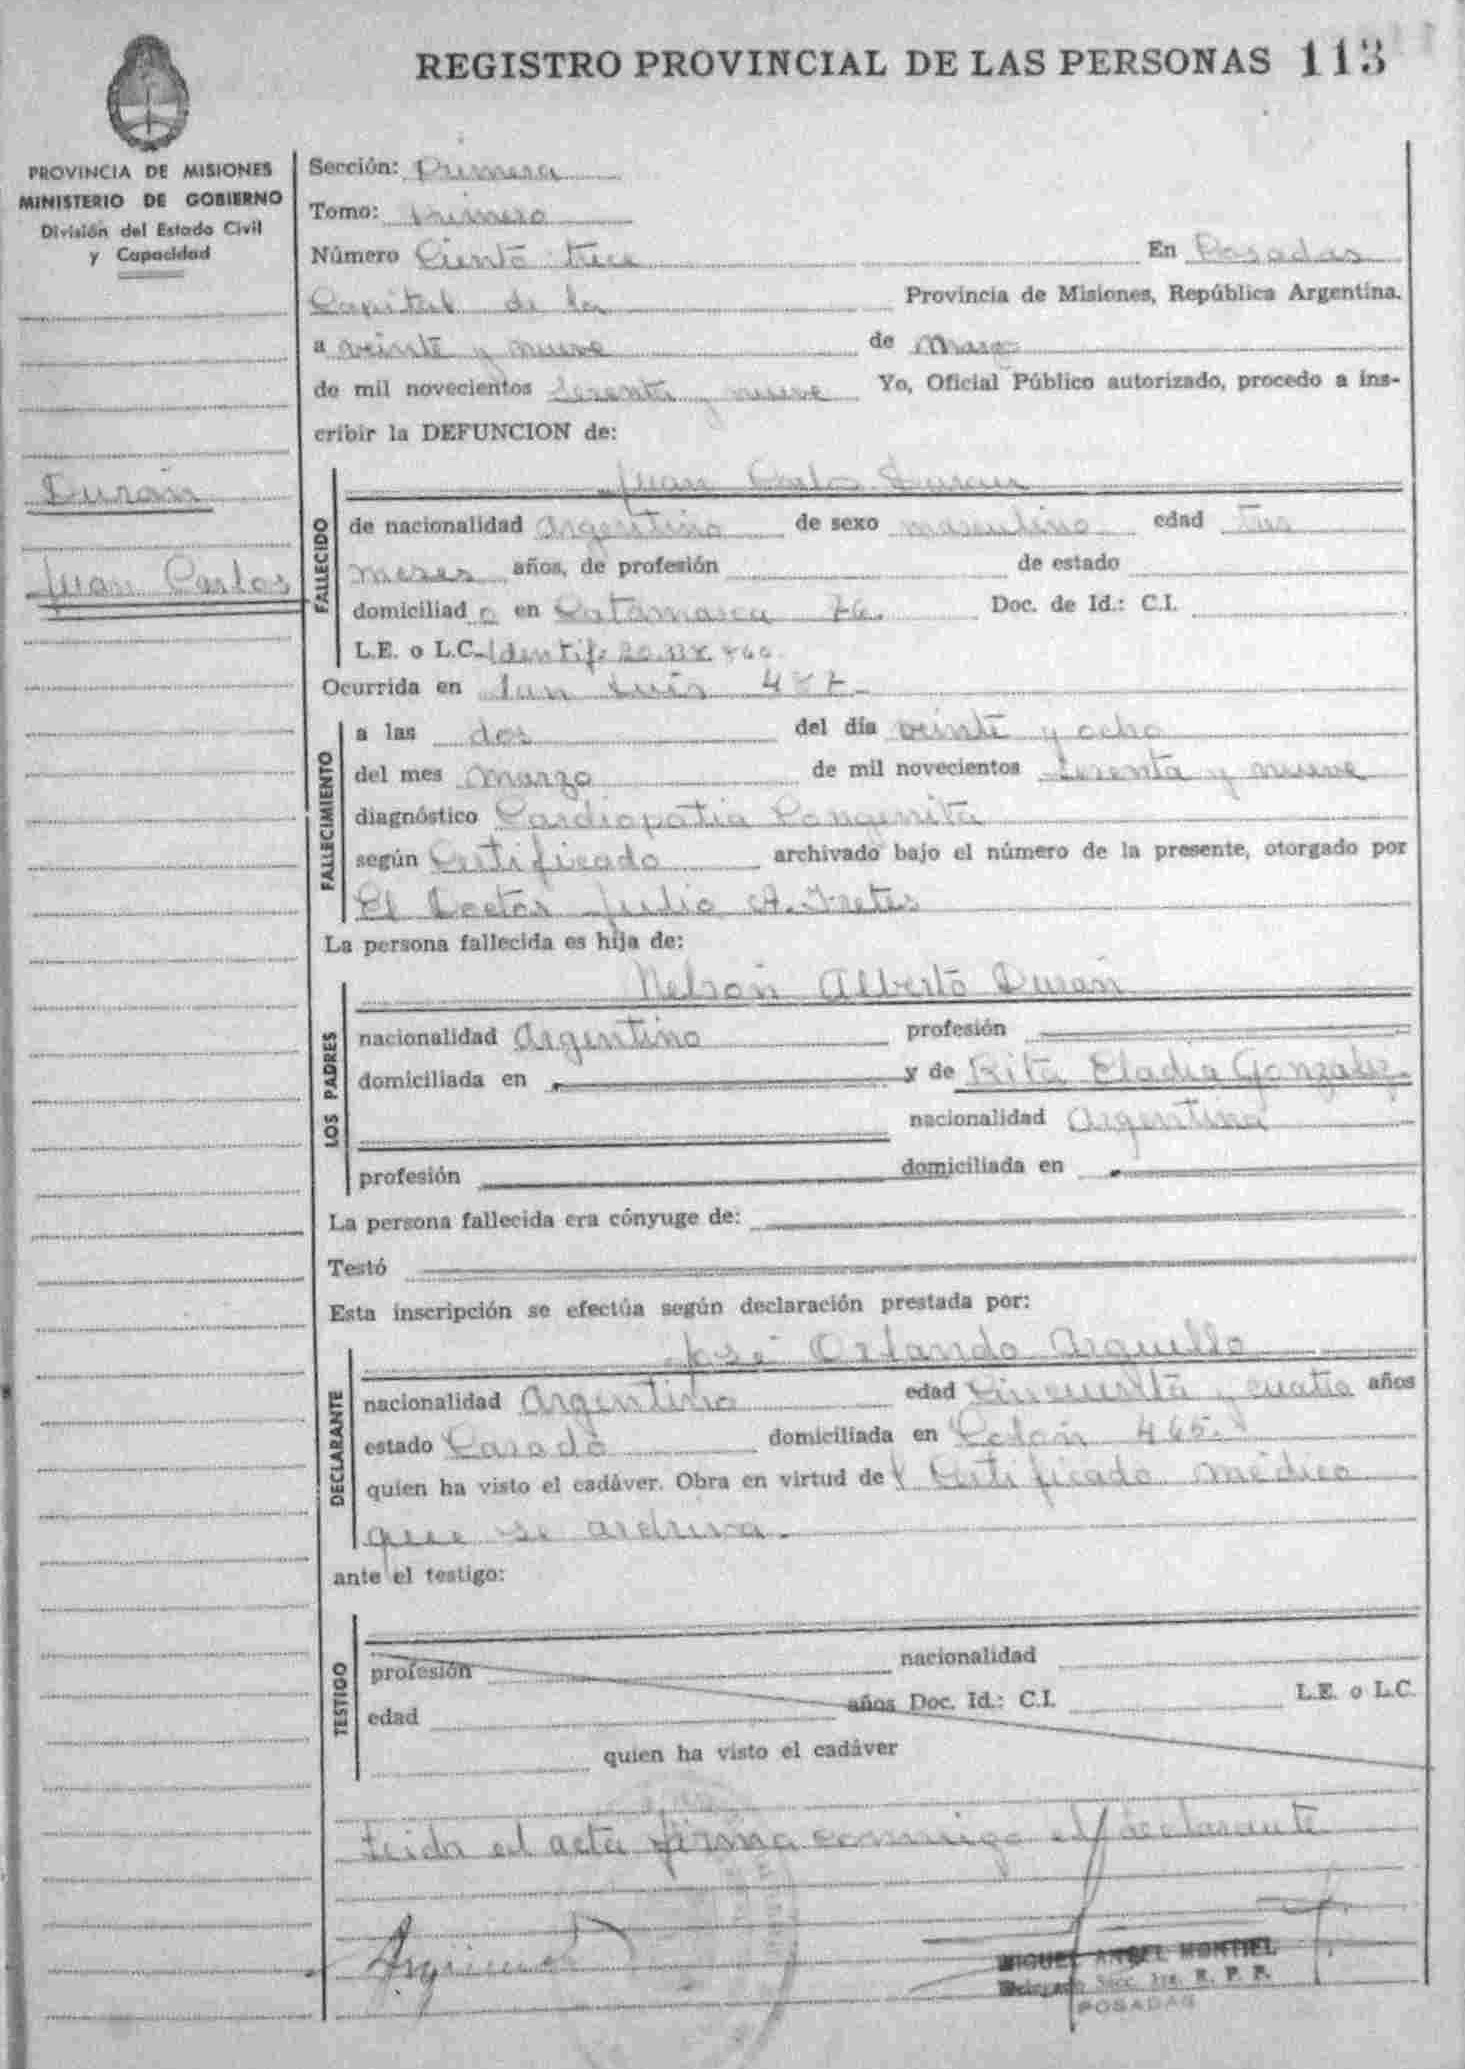 REGISTRO PROVINCIAL DE LAS PERSONAS 113
PROVINCIA DE MISIONES
MINISTERIO DE GOBIERNO
División del Estado Civil
y Capacidad
Durán
Juan Carlos
Sección: Primera
Tomo: Primero
Número Ciento trece En Posadas
Capital de la Provincia de Misiones, República Argentina.
a veinte y nueve de Marzo
de mil novecientos setenta y nueve Yo, Oficial Público autorizado, procedo a ins-
cribir la DEFUNCION de:
FALLECIDO
Juan Carlos Duran
de nacionalidad Argentino de sexo masculino edad Tres
meses años, de profesión de estado
domiciliad o en Catamarca 76. Doc. de Id.: C.I.
L.E. o L.C. Identif.
Ocurrida en San Luis
FALLECIMIENTO
a las dos del día veinte y ocho
del mes Marzo de mil novecientos setenta y nueve
diagnóstico Cardiopatia Congenita
según Certificado archivado bajo el número de la presente, otorgado por
El Doctor Julio A. Fretes
La persona fallecida es hija de:
LOS PADRES
Nelson Alberto Duran
nacionalidad Argentino profesión
domiciliada en y de Rita Eladia Gonzalez
nacionalidad Argentina
profesión domiciliada en
La persona fallecida era cónyuge de:
Testó
Esta inscripción se efectúa según declaración prestada por:
DECLARANTE
José Orlando Arguello
nacionalidad Argentino edad Cincuenta y cuatro años
estado Casado domiciliada en Colón 465.
quien ha visto el cadáver. Obra en virtud del Certificado médico
que se archiva.
ante el testigo:
TESTIGO
profesión nacionalidad
edad años Doc. Id.: C.I. L.E. o L.C.
quien ha visto el cadáver
Leida el acta firma conmigo el declarante
MIGUEL ANGEL MONTIEL
Delegado Secc. 1ra. R. P. P.
POSADAS